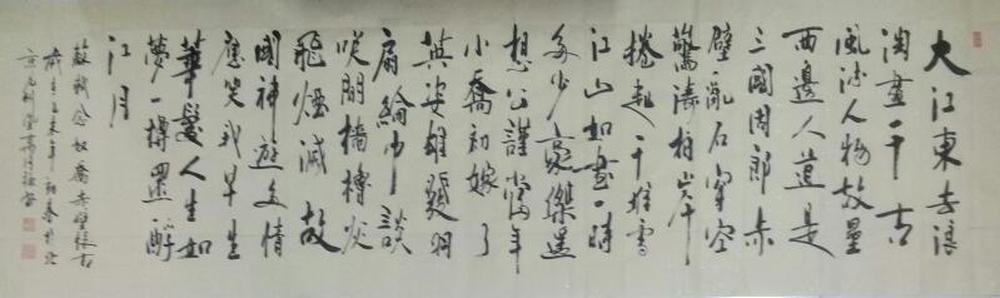 大江東去浪
淘盡千古
風流人物故壘
西邊人道是
三國周郎赤
壁亂石穿空
驚濤拍岸
捲起千堆雪
江山如畫一時
多少豪傑遙
想公謹當年
小喬初嫁了
英姿雄發羽
扇綸巾談
笑間檣櫓灰
飛煙滅故
國神遊多情
應笑我早生
華髮人生如
夢一樽還酹
江月
蘇軾念奴嬌赤壁懷古
歲在乙未年初春於北
京